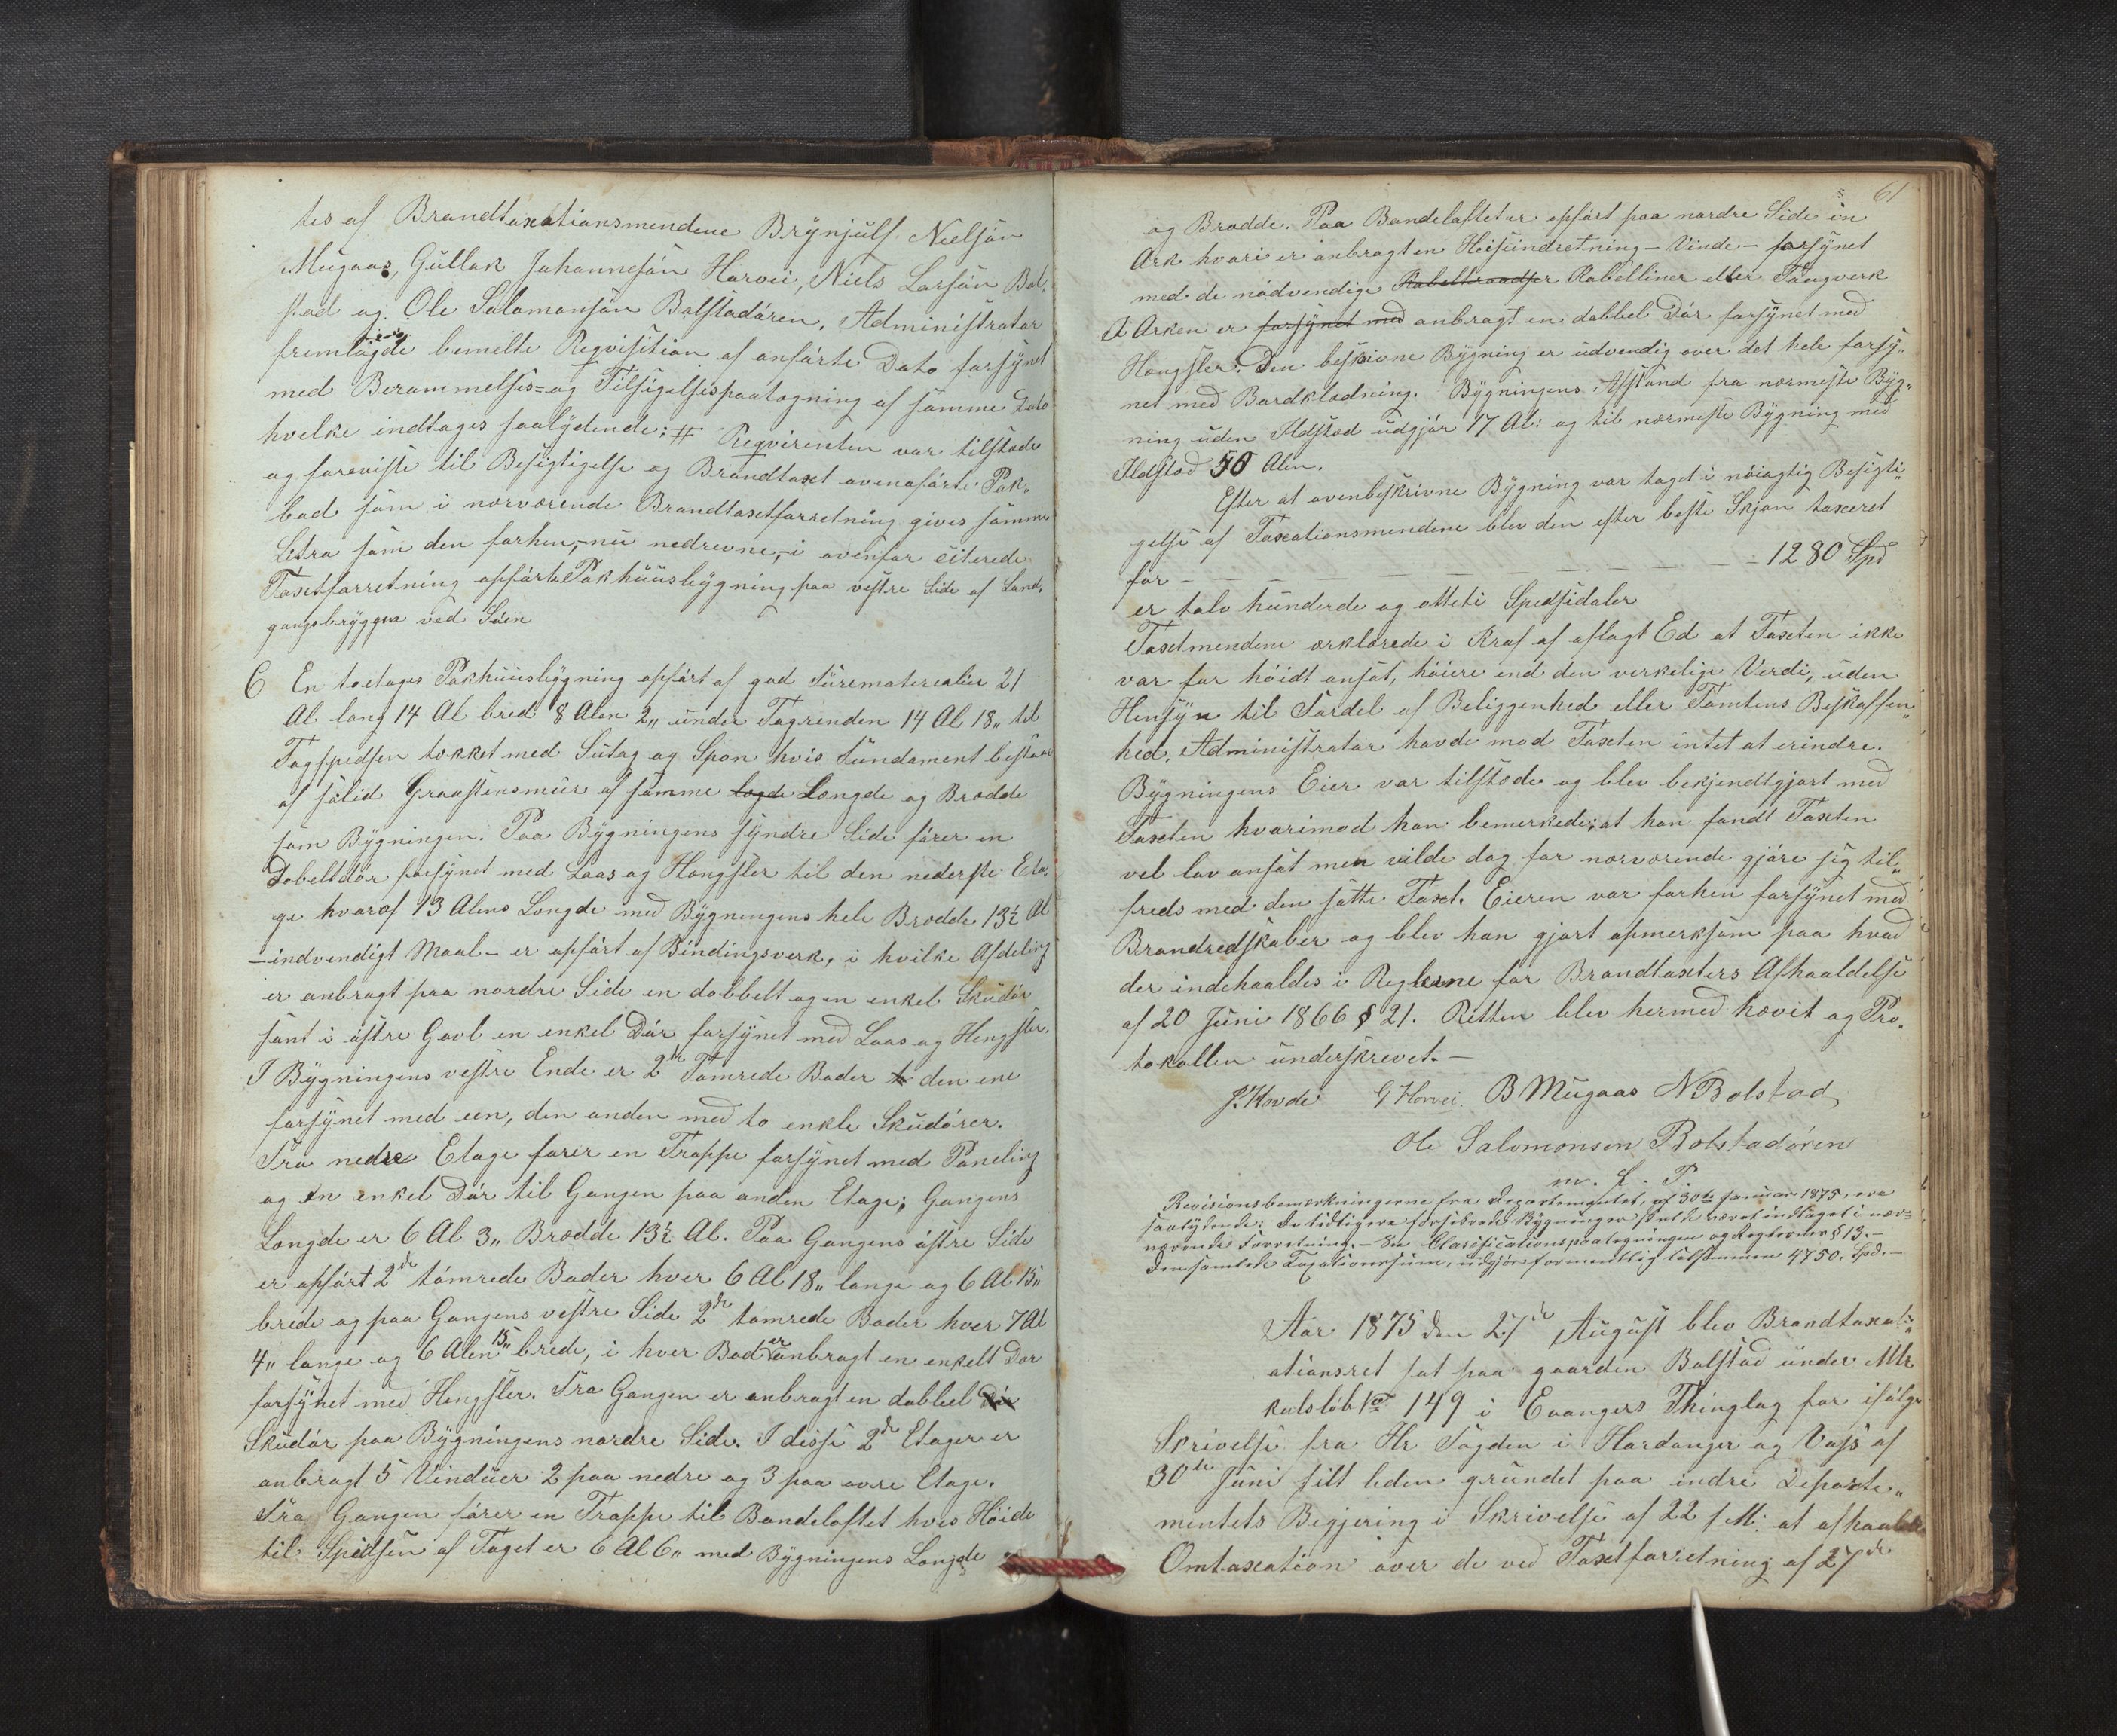 tes af Brandtaxationsmændene Brynjulf Nielsøn
Mugaas, Gullak Johannesøn Horvei, Niels Larsøn Bol„
stad og Ole Salamonsøn Bolstadøren. Administrator
fremlagde bemelte Reqvisition af anførte Dato forsynet
med Berammelses= og Tilsigelsespaategning af samme Dato
hvelke indtages saalydende: # Reqvirenten var tilstæde
og foreviste til Besigtigelse og Brandtaxt ovenaførte Pak„
bod som i nærværende Brandtaxtforretning gives samme
Litra som den forhen,- nu nedrevne,- i ovenfor citerede
Taxtforretning opførte Pakhuusbygning paa vestre Side af Land„
gangsbryggen ved Søen
C En toetages Pakhuusbygning opført af god Furematerialier 21
Al lang 14 Al bred 8 Alen 2„ under Tagrenden 14 Al 18„ til
Tagspedsen tækket med Sutag og Spon hvis Fundament bestaar
af solid Graastensmuur af samme Længde og Bredde
som Bygningen. Paa Bygningens syndre Side fører en
Dobeltdør forsynet med Laas og Hængsler til den nederste Eta„
ge hvoraf 13 Alens Længde med Bygningens hele Bredde 13½ Al
- indvendigt Maal - er opført af Bindingsverk, i hvilke Afdeling
er anbragt paa nordre Side en dobbelt og en enkel Skudør
samt i østre Gavl en enkel Dør forsynet med Laas og Hengsler.
I Bygningens vestre Ende er 2de Tømrede Boder den ene
forsynet med een, den anden med to enkle Skudører.
Fra nedre Etage fører en Trappe forsynet med Paneling
og en enkel Dør til Gangen paa anden Etage; Gangens
Længde er 6 Al 3„ Brædde 13½ Al. Paa Gangens østre Side
er opført 2de tømrede Boder hver 6 Al 18„ lange og 6 Al 15„
brede og paa Gangens vestre Side 2de tømrede Boder hver 7 Al
4„ lange og 6 Alen 15„ brede, i hver Bod er anbragt en enkelt Dør
forsynet med Hengsler. Fra Gangen er anbragt en dobbel
Skudør paa Bygningens nordre Side. I disse 2de Etager er
anbragt 5 Vinduer 2 paa nedre og 3 paa øvre Etage.
Fra Gangen fører en Trappe til Bandeloftet hvis Høide
til Spidsen af Taget er 6 Al 6„ med Bygningens Længde
61
og Brædde. Paa Bandeloftet er opført paa nordre Side en
Ark hvori er anbragt en Heiseindretning - Vinde - forsynet
med de nødvendige Kabelltraadser Kabelliner eller Taugverk
I Arken er forsynet med anbragt en dobbel Dør forsynet med
Hængsler. Den beskrivne Bygning er udvendig over det hele forsy„
net med Bordklædning. Bygningens Afstand fra nærmeste Byg„
ning uden Ildsted udgjør 17 Al: og til nærmeste Bygning med
Ildsted 50 Alen.
Efter at ovenbeskrivne Bygning var taget i nøiagtig Besigti„
gelse af Taxationsmændene blev den efter beste Skjøn taxeret
for - - - - - - - - - - 1280 Spd
er tolv hunderde og otteti Spedsidaler
Taxtmendene erklærede i Kraf af aflagt Ed at Taxten ikke
var for høidt ansat, høiere end den verkelige Verdi, uden
Hensyn til Fordel af Beliggenhed eller Tomtens Beskaffen„
hed. Administrator havde mod Taxten intet at erindre.
Bygningens Eier var tilstæde og blev bekjendtgjort med
Taxten hvorimod han bemerkede; at han fandt Taxten
vel lav ansat men vilde dog for nærværende gjøre sig til„
freds med den satte Taxt. Eieren var forhen forsynet med
Brandredskaber og blev han gjort opmerksom paa hvad
der indehaaldes i Reglerne for Brandtaxters Afhaaldelse
af 20 Juni 1866 § 21. Retten blev hermed hævit og Pro„
tokollen underskrevet. -
J. Hovde G Horvei. B Mugaas N Bolstad
Ole Salomonsen Bolstadøren
m. f. P.
Revisionsbemærkningerne fra Departementet, af 30te Januar 1875, ere
saalydende: De tidligere forsikrede Bygninger skulle været indtaget i nær=
værende Forretning. - Se Classificationspaategningen og Reglernes § 13. -
Den samlede Taxationssum, udgjør formentlig tilsammen 4750. Spd. -
Aar 1875 den 27de August blev Brandtaxati„
ationsret sat paa gaarden Bolstad under Mtr
kulsløb No 149 i Evangers Thinglag for ifølge
Skrivelse fra Hr Fogden i Hardanger og Vos af
30te Juni sidt leden grundet paa indre Departe„
mentets Begjering i Skrivelse af 22 s. M. at afhaalde
Omtaxation over de ved Taxtforretning af 27de